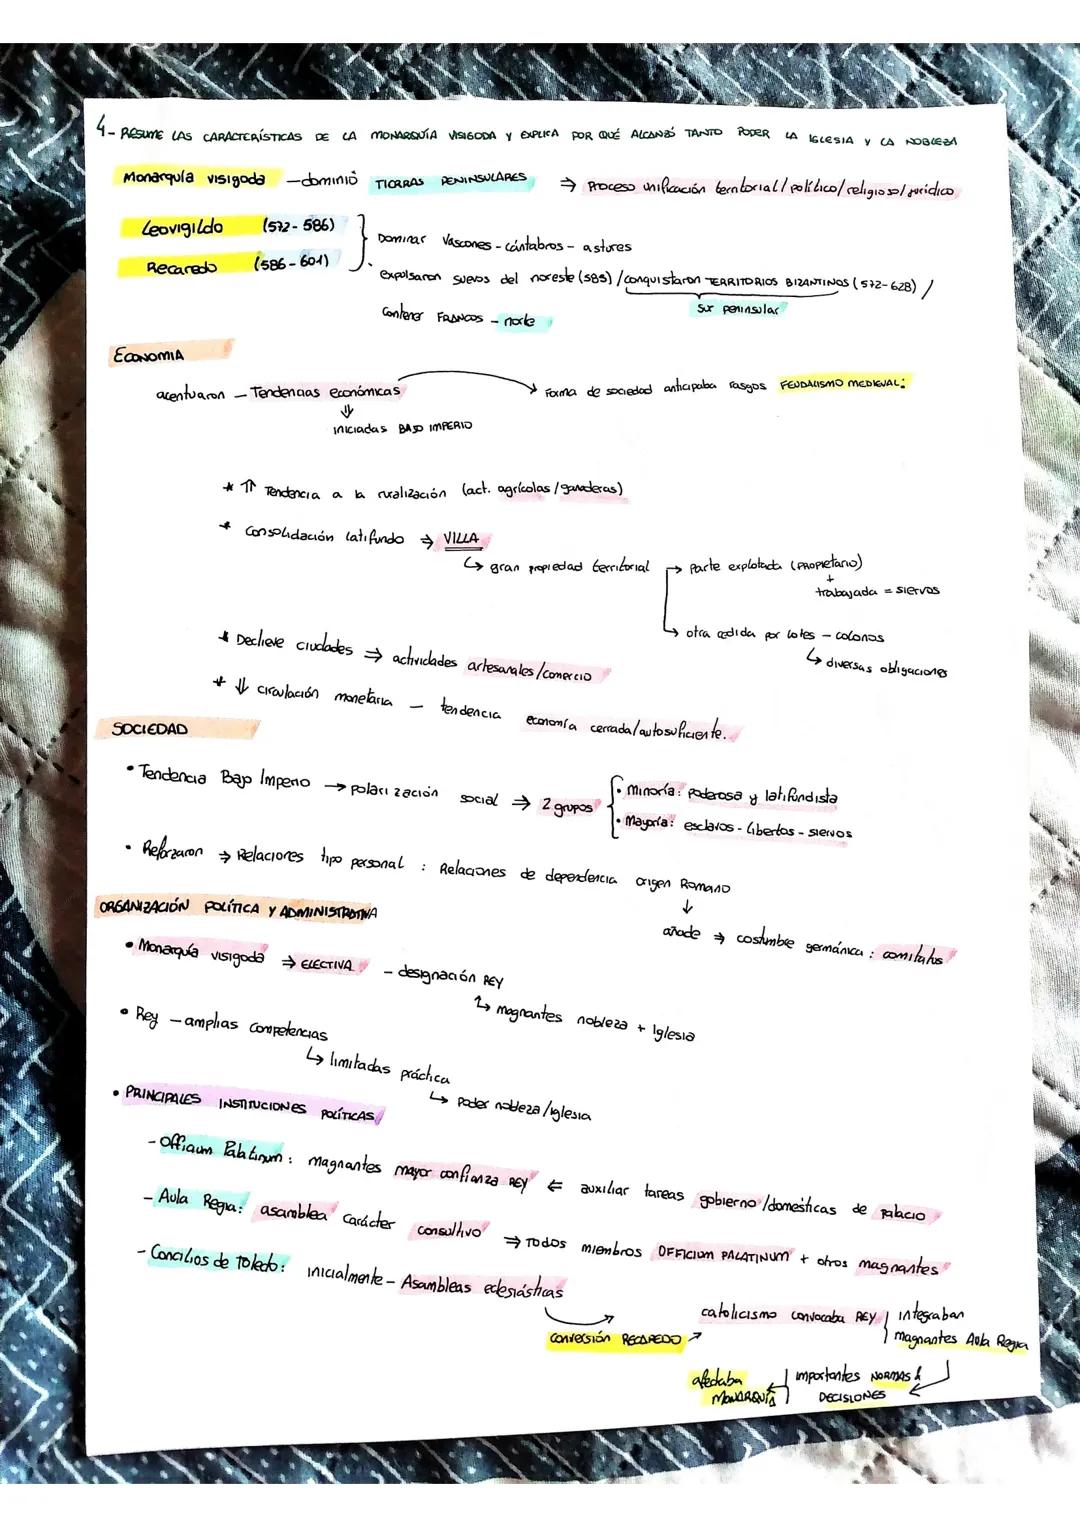 4- RESUME LAS CARACTERÍSTICAS DE LA MONARQUÍA VISIGODA Y EXPLICA POR QUÉ ALCANZÓ TANTO PODER LA IGLESIA Y LA NOBLEZA
Monarquía visigoda — dominió TIERRAS PENINSULARES ⇒ Proceso unificación territorial/político/religioso/jurídico
Leovigildo (572-586)
Recaredo (586-601)
Dominar Vascones - cántabros - astures
expulsaron suevos del noreste (585) / conquistaron TERRITORIOS BIZANTINOS (572-628) /
sur peninsular
Contener FRANCOS - norte
ECONOMIA
acentuaron - Tendencias económicas → Forma de sociedad anticipaba rasgos FEUDALISMO MEDIEVAL:
⇓
iniciadas BAJO IMPERIO
* ⇑ Tendencia a la ruralización (act. agrícolas/ganaderas)
* Consolidación latifundo ⇒ VILLA
↳ gran propiedad territorial → Parte explotada (PROPIETARIO)
+
trabajada = siervos
↳ otra cedida por lotes - colonos
↳ diversas obligaciones
* Declieve ciudades ⇒ actividades artesanales/comercio
* ⇓ circulación monetaria - tendencia economía cerrada/autosuficiente.
SOCIEDAD
• Tendencia Bajo Imperio → polarización social ⇒ 2 grupos
• Minoría: poderosa y latifundista
• Mayoría: esclavos - libertos - siervos
• Reforzaron ⇒ Relaciones tipo personal : Relaciones de dependencia origen Romano
↓
añade ⇒ costumbre germánica : comitatus
ORGANIZACIÓN POLÍTICA Y ADMINISTRATIVA
• Monarquía visigoda ⇒ ELECTIVA - designación REY
↳ magnantes nobleza + Iglesia
• Rey - amplias competencias
↳ limitadas práctica
↳ Poder nobleza/Iglesia
• PRINCIPALES INSTITUCIONES POLÍTICAS
- Officium Palatinum: magnantes mayor confianza REY ⇐ auxiliar tareas gobierno/domésticas de palacio
- Aula Regia: asamblea carácter consultivo ⇒ TODOS miembros OFFICIUM PALATINUM + otros magnantes
- Concilios de Toledo: inicialmente - Asambleas eclesiásticas
conversión RECAREDO → catolicismo convocaba REY
integraban
magnantes Aula Regia
importantes NORMAS &
DECISIONES
afectaba
MONARQUÍA